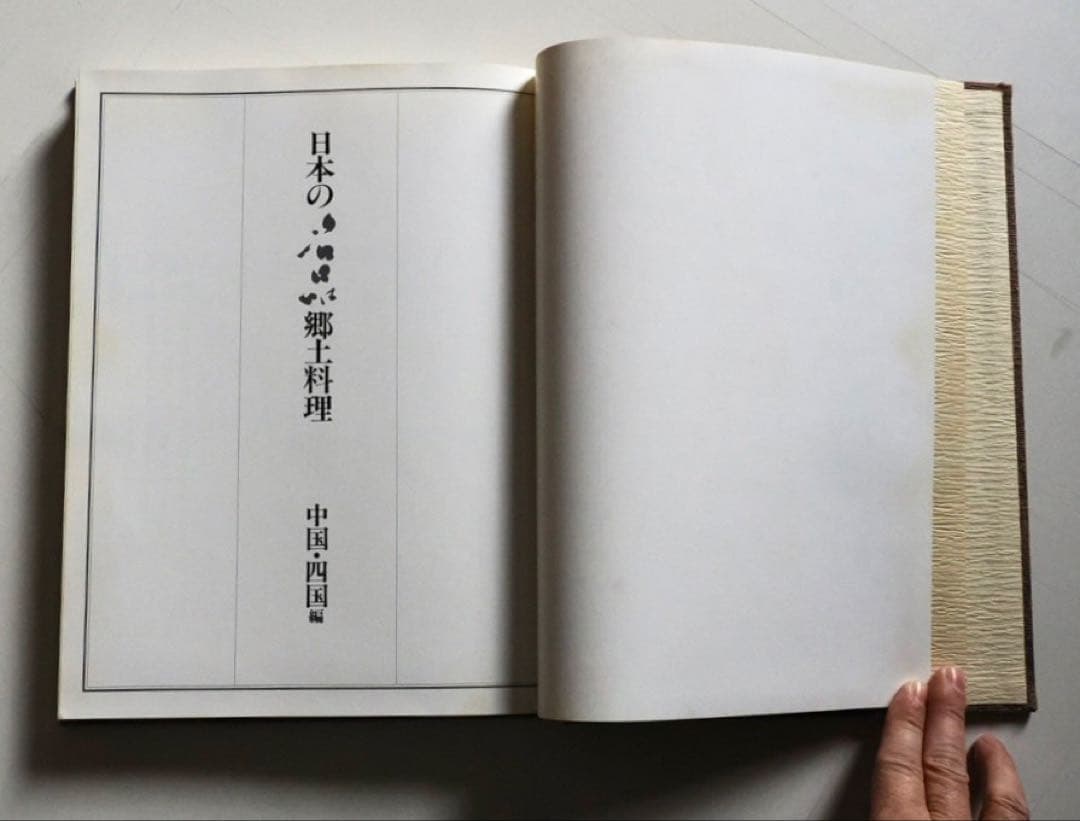 日本の名品郷土料理
中国・四国編